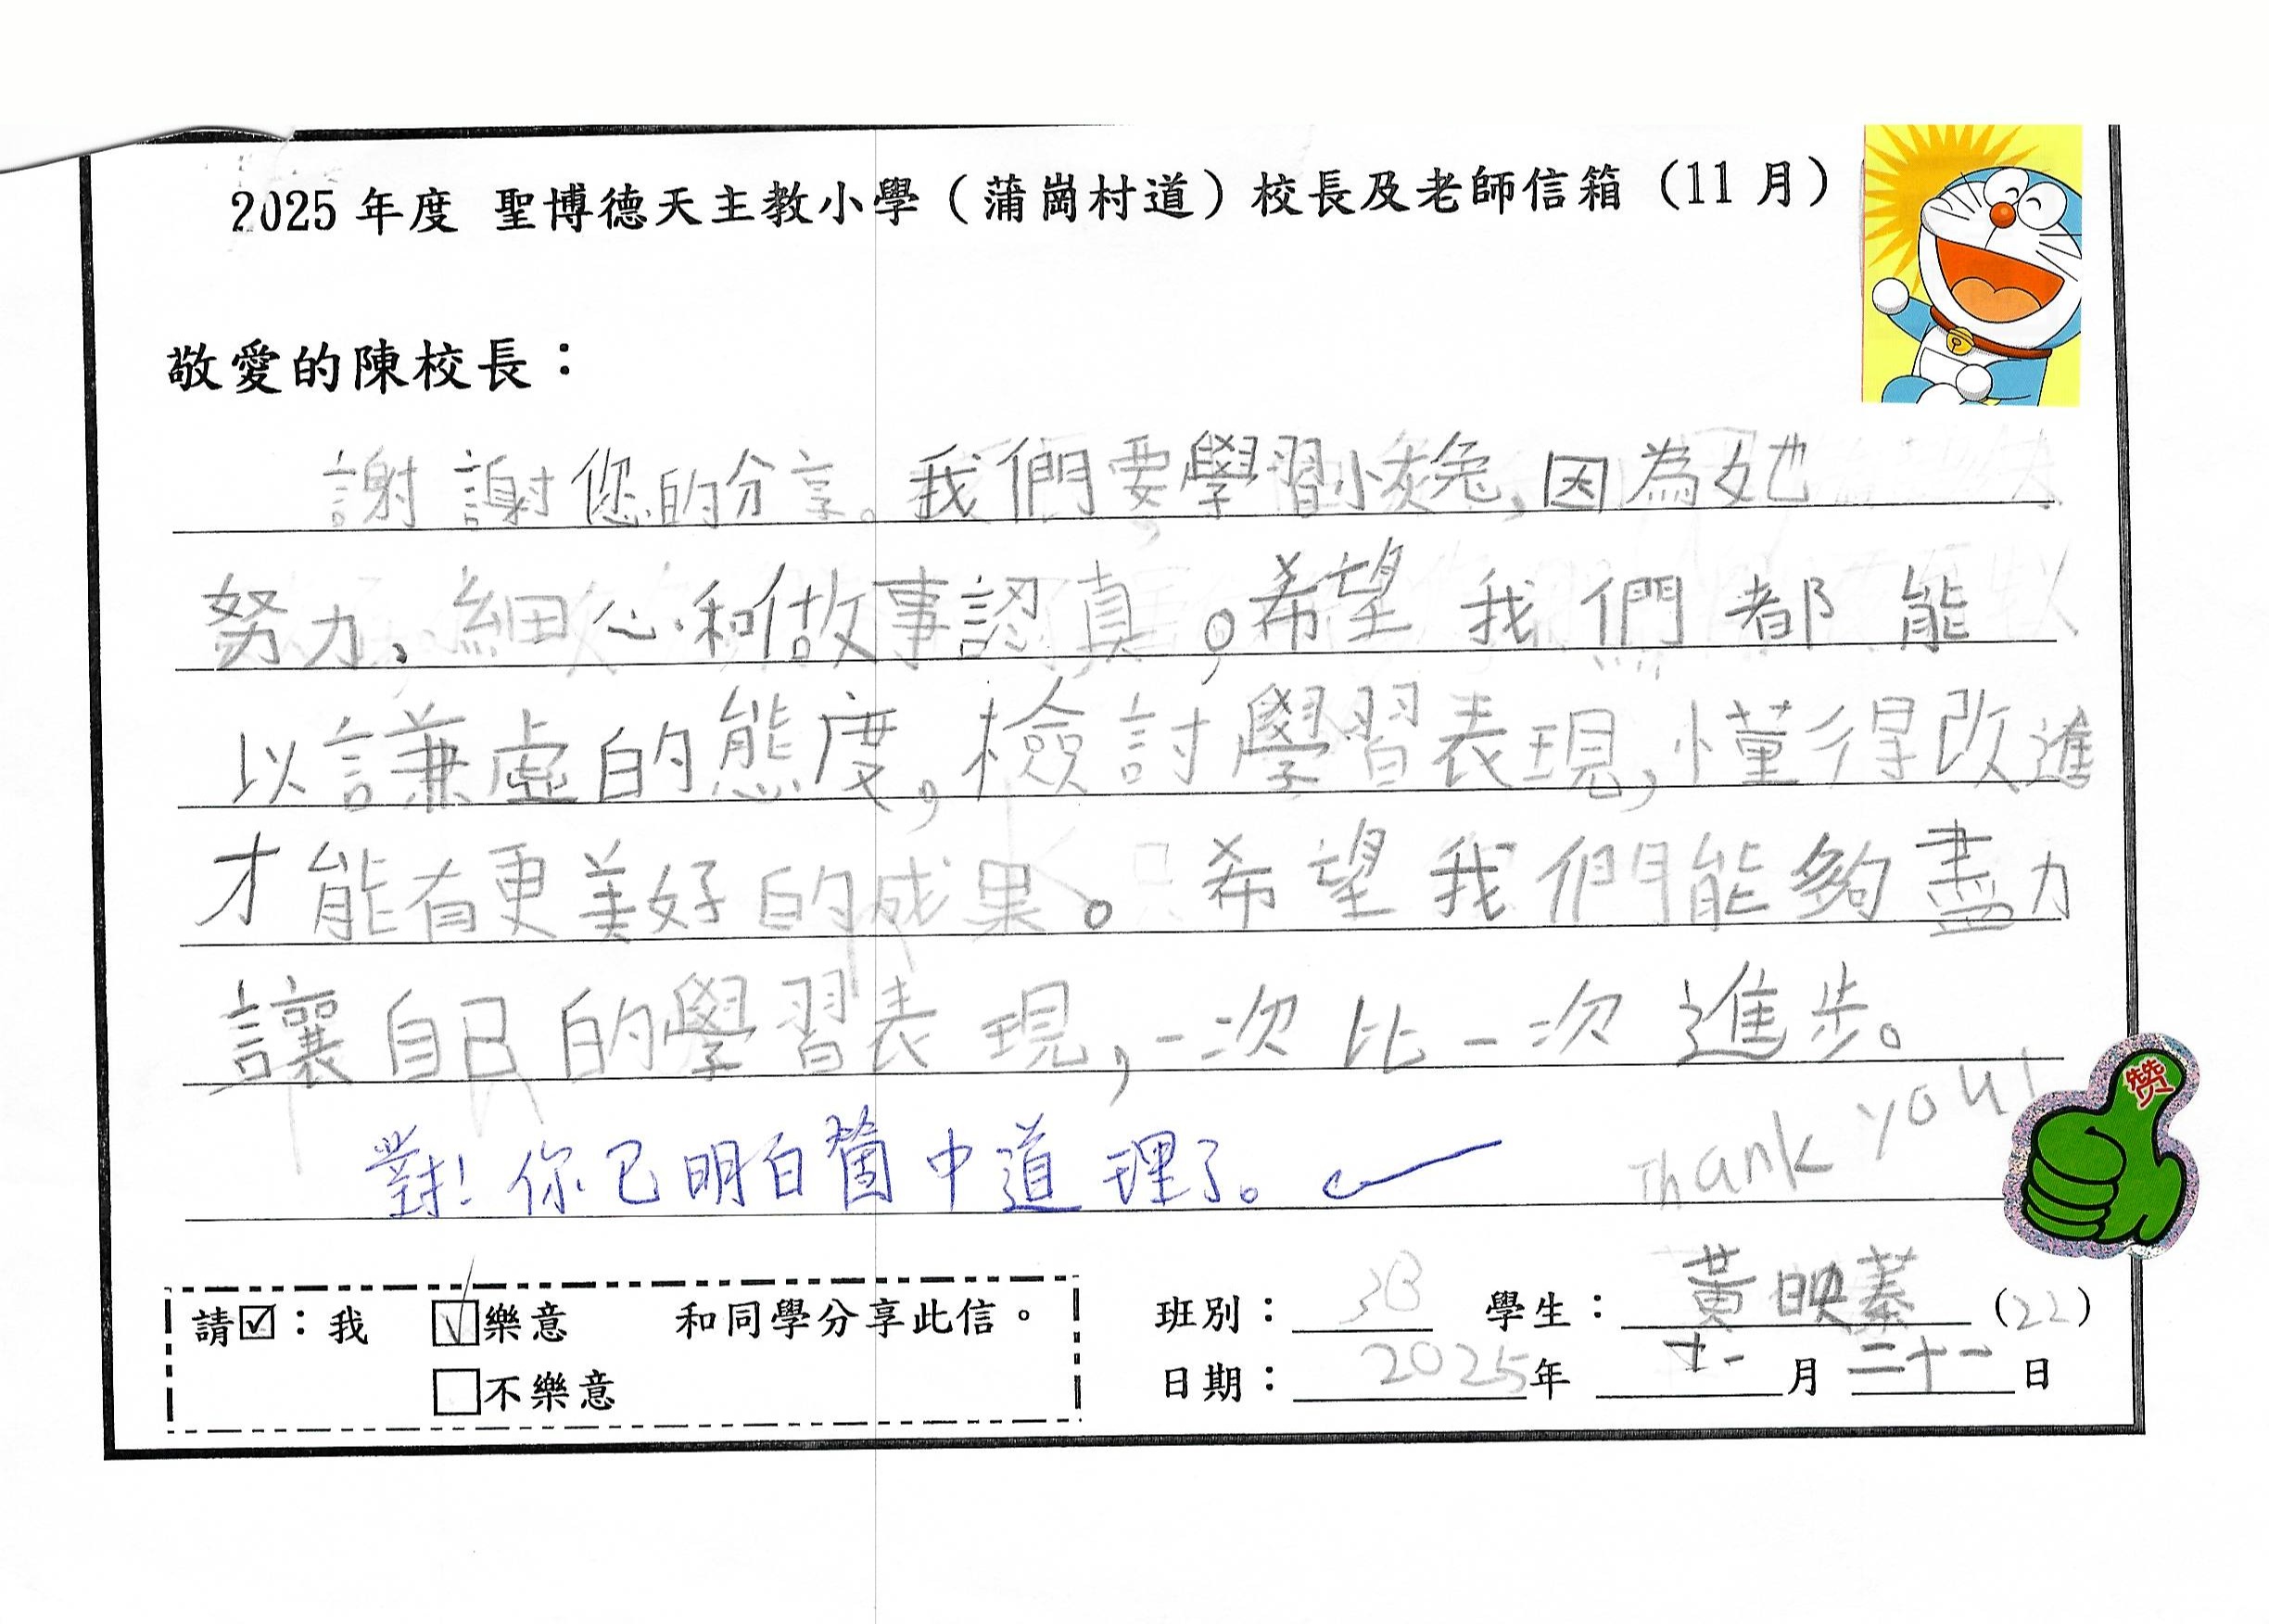 2025 年度 聖博德天主教小學（蒲崗村道）校長及老師信箱（11 月）
敬愛的陳校長：
謝謝您的分享。我們要學習小矮兔,因為她
努力、細心和做事認真。希望我們都能
以謙虛的態度,檢討學習表現,懂得改進
才能有更美好的成果。希望我們能夠盡力
讓自己的學習表現,一次比一次進步。
Thank you!
對!你已明白箇中道理了。
赞
請☑：我 ☑樂意 和同學分享此信。
□不樂意
班別： 3B 學生： 黃映蓁 (22)
日期： 2025年 十一月 二十一日